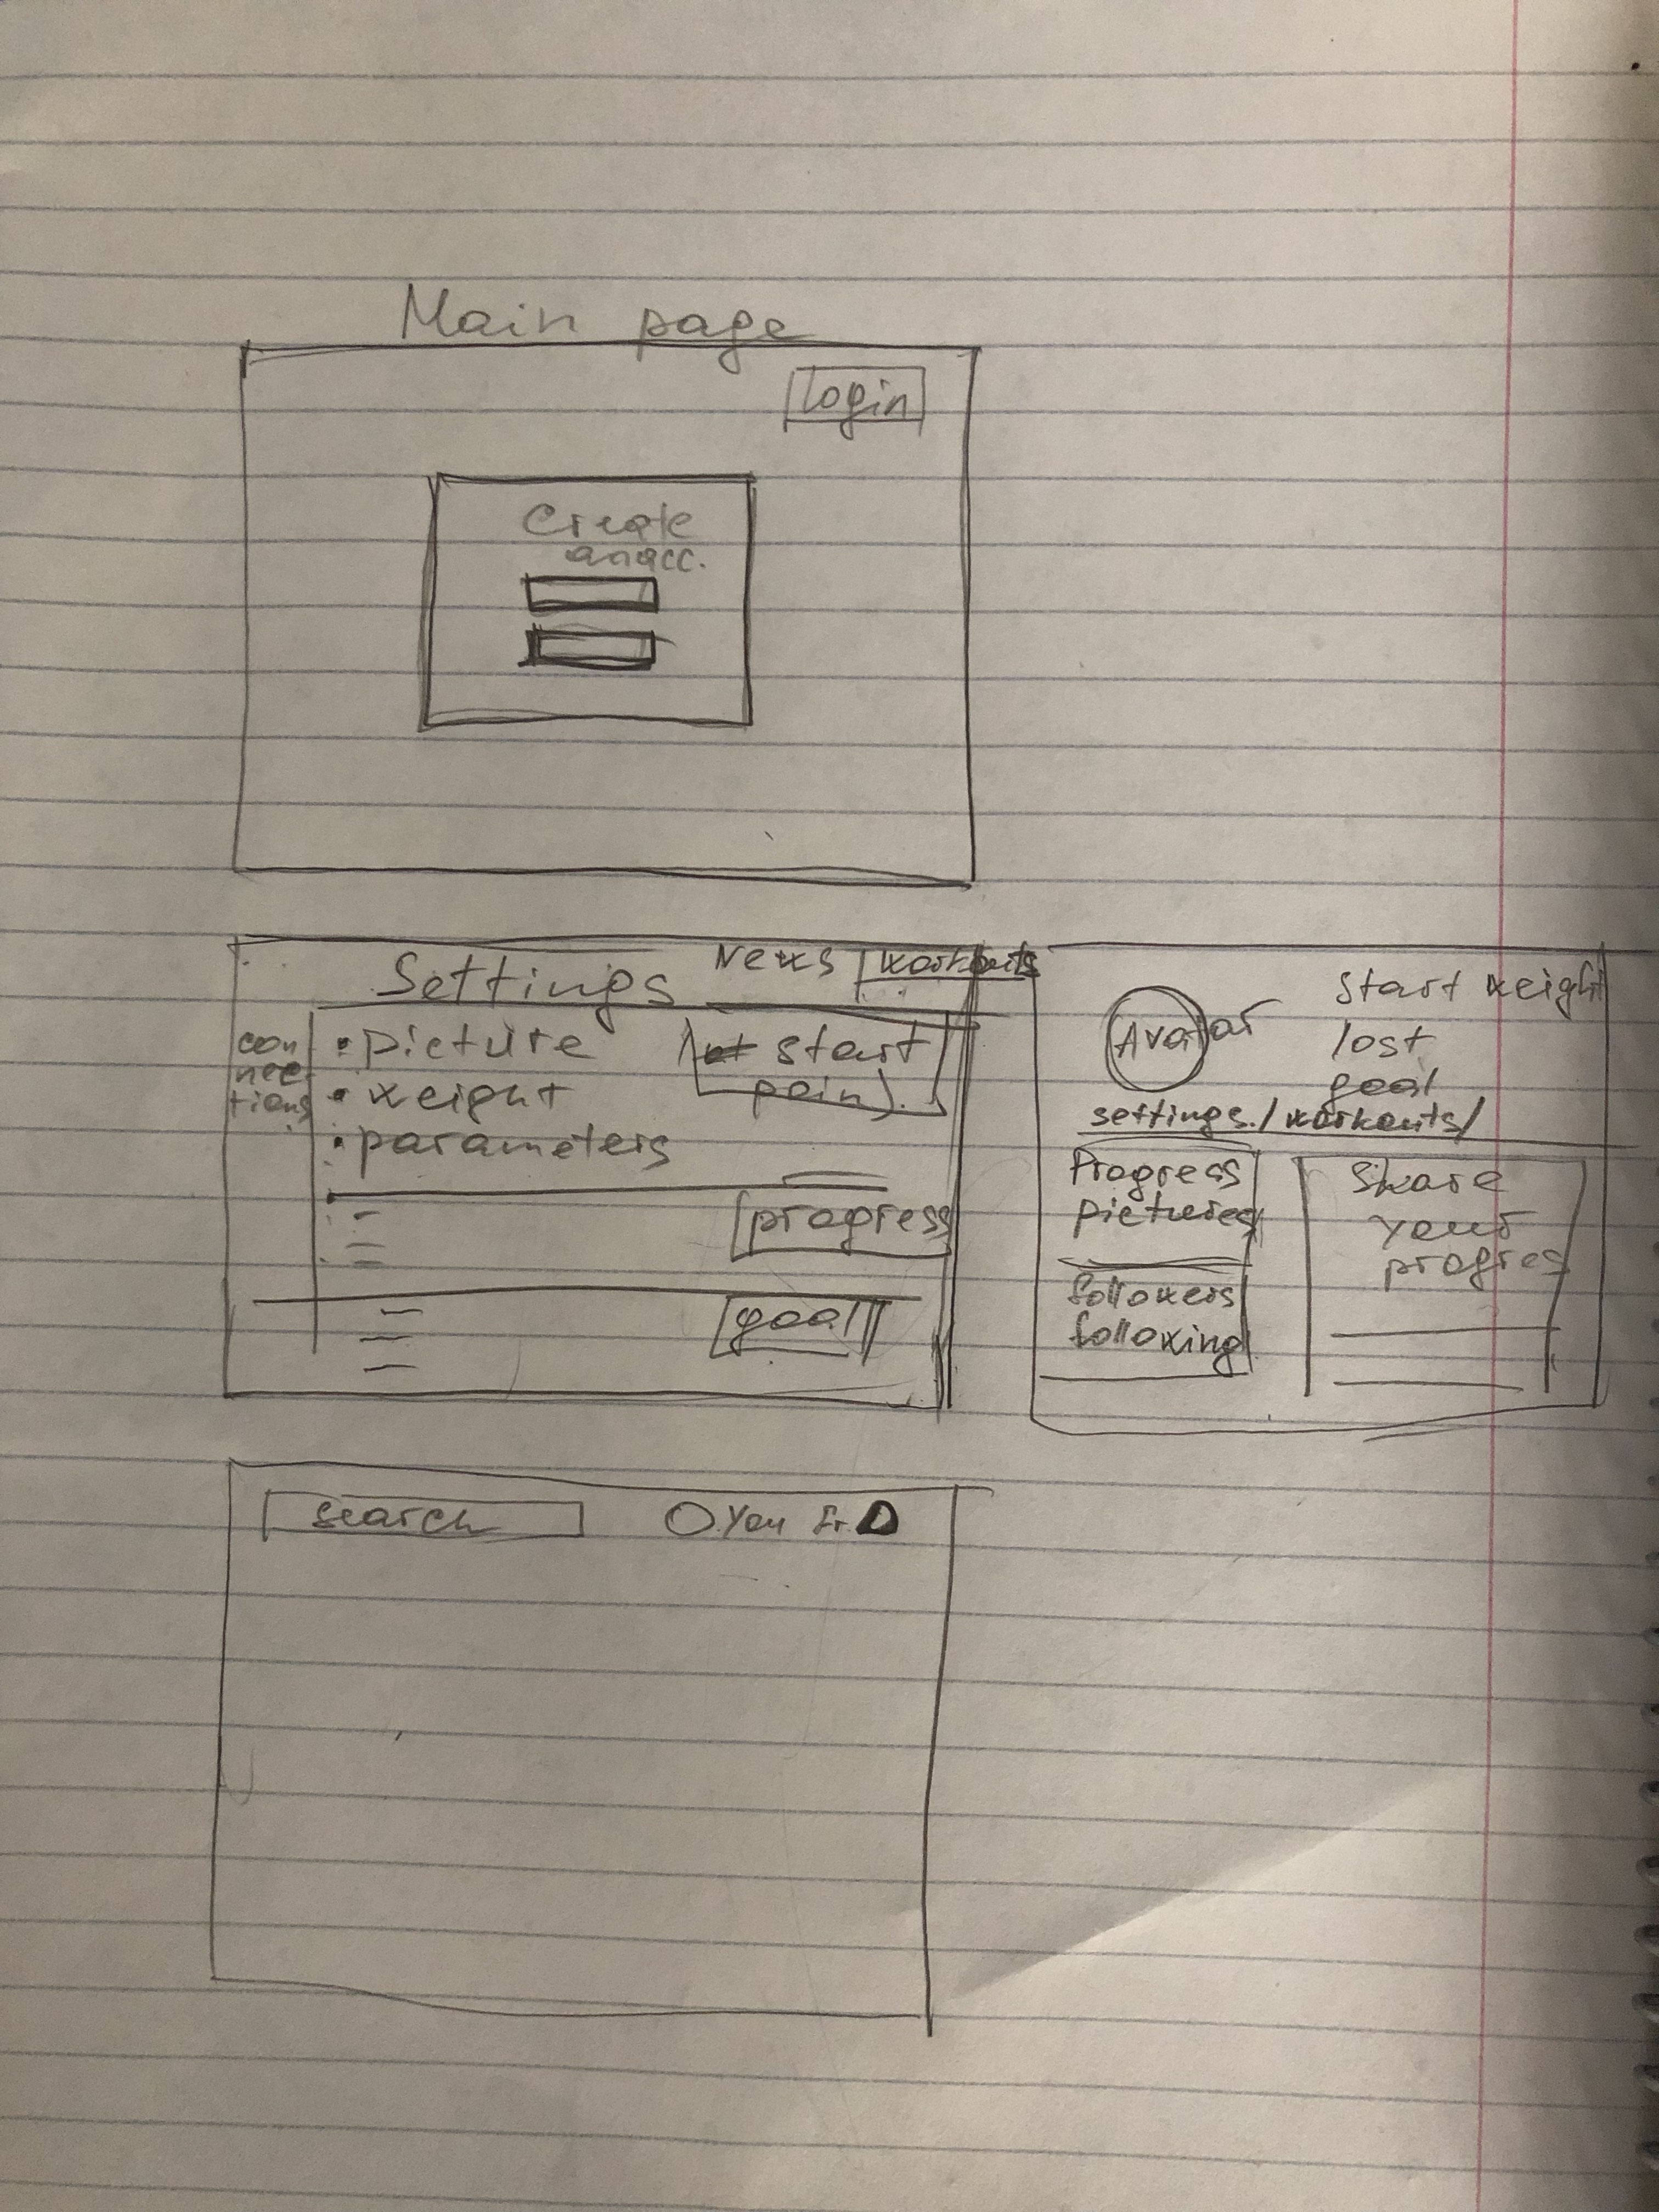 Main page
login
Create
an acc.
Settings
News
workouts
con
nec
tions
• picture
• weight
• parameters
start
poin).
progress
goal
Avatar
Start weight
lost
goal
settings./workouts/
Progress
pictures
followers
following
Share
your
progres
search
You fr.